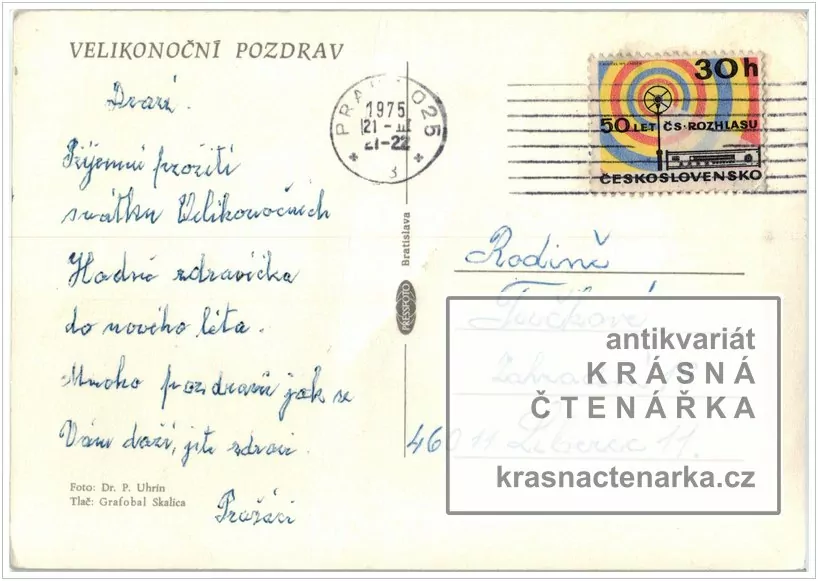 VELIKONOČNÍ POZDRAV
Drazí.
Příjemné prožití
svátků Velikonočních
Hodně zdravíčka
do nového léta.
Mnoho pozdravů jak se
Vám daří, jste zdraví.
Pražáci
Foto: Dr. P. Uhrín
Tlač: Grafobal Skalica
PRESSFOTO Bratislava
PRAHA 025
1975
21-III
21-22
3
30h
50 LET ČS·ROZHLASU
ČESKOSLOVENSKO
Rodině
460 11 Liberec 11.
antikvariát
KRÁSNÁ
ČTENÁŘKA
krasnactenarka.cz